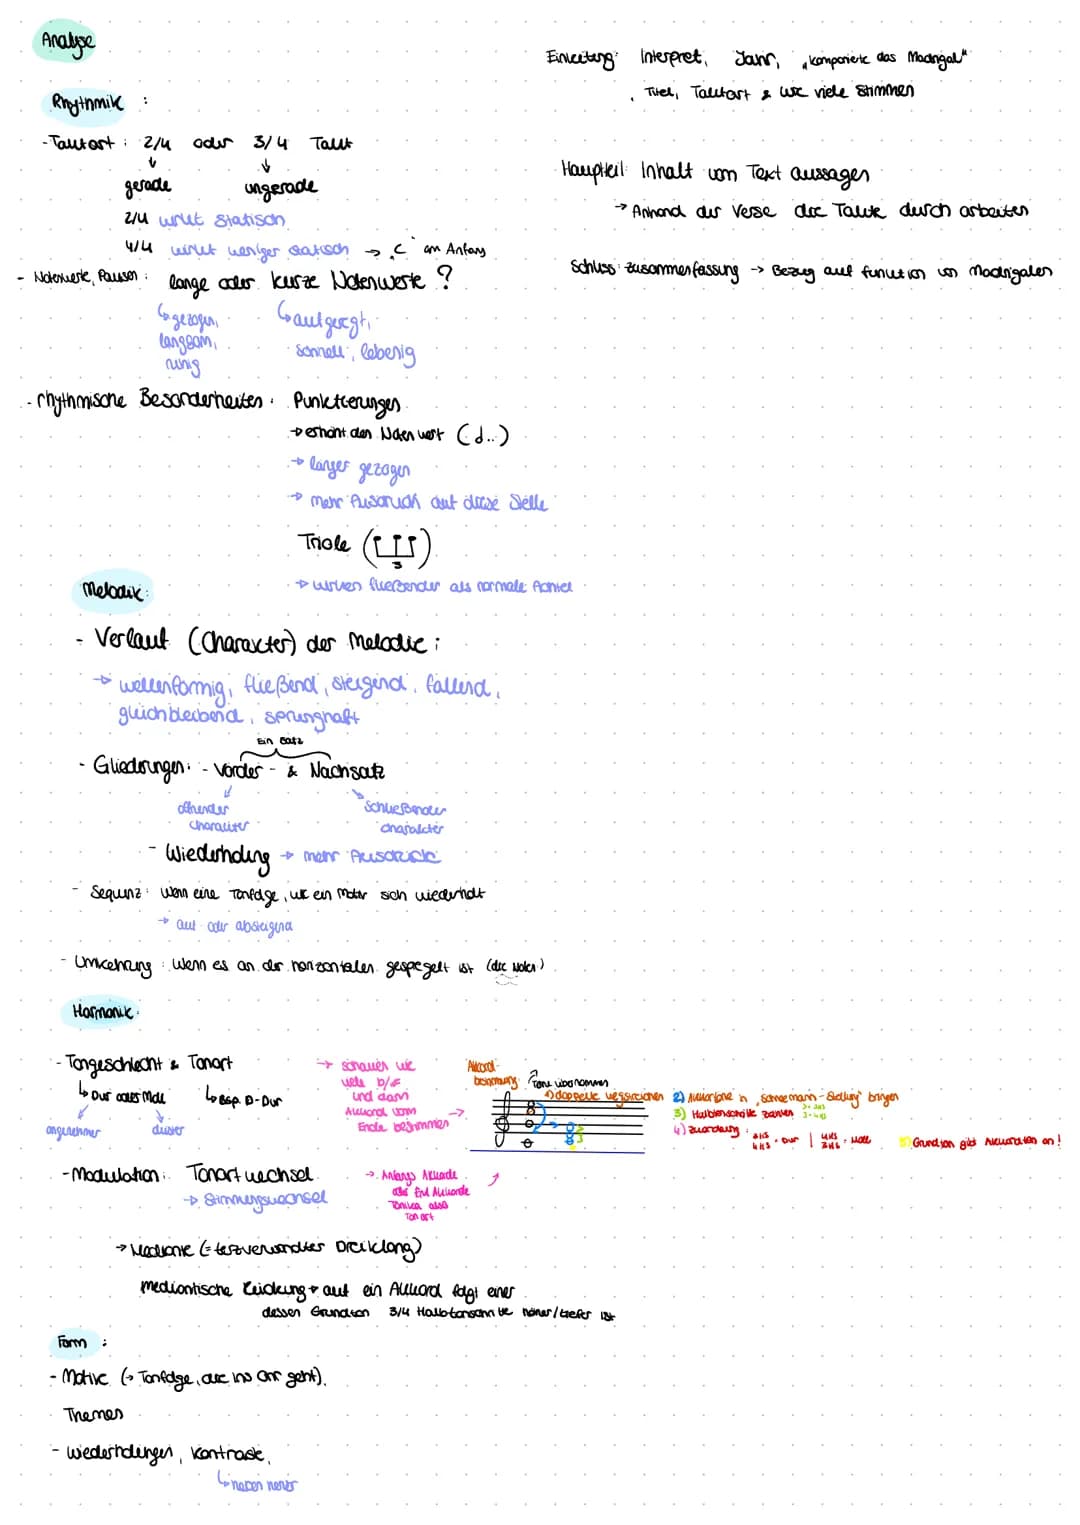 Analyse
Einleitung: Interpret, Jahr, „komponierte das Madrigal"
, Titel, Taktart & wie viele Stimmen
Rhythmik :
- Taktart : 2/4 oder 3/4 Takt
gerade ungerade
2/4 wirkt statisch
4/4 wirkt weniger statisch → „C" am Anfang
Hauptteil: Inhalt vom Text aussagen
→ Anhand der Verse die Takte durch arbeiten
Schluss: Zusammenfassung → Bezug auf Funktion von Madrigalen
- Notenwerte, Pausen : lange oder kurze Notenwerte ?
↳ gezogen, langsam, ruhig
↳ aufgeregt, schnell, lebenig
- rhythmische Besonderheiten : Punktierungen
→ erhöht den Notenwert (d..)
→ länger gezogen
→ mehr Ausdruck auf diese Stelle
Triole ( 3 )
→ wirken fließender als normale Achtel
Melodik:
- Verlauf (Charakter) der Melodie :
→ wellenförmig, fließend, steigend, fallend,
gleichbleibend, sprunghaft
Ein Satz
- Gliederungen : - Vorder - & Nachsatz
öffnender Charakter
Schließender Charakter
- Wiederholung → mehr Ausdruck
- Sequenz : Wenn eine Tonfolge, wie ein Motiv sich wiederholt
→ auf oder absteigend
- Umkehrung : Wenn es an der horizontalen gespiegelt ist (die Noten)
Harmonik:
- Tongeschlecht & Tonart
↳ Dur oder Moll ↳ Bsp. D-Dur
angenehmer düster
→ schauen wie viele b/# und dann Akkord vom Ende bestimmen →
Akkord-bestimmung: Töne übernommen
1) doppelte wegstreichen
2) Akkordtöne in „Schneemann-Stellung" bringen
3) Halbtonschritte zählen
4) Zuordnung : Dur | Moll
5) Grundton gibt Akkordton an!
- Modulation : Tonart wechsel
→ Stimmungswechsel
→ Anfangs Akkorde oder End Akkorde Tonika also Tonart
→ Mediante (= terzverwandter Dreiklang)
mediantische Rückung → auf ein Akkord folgt einer
dessen Grundton 3/4 Halbtonschritte höher/tiefer ist
Form :
- Motive (→ Tonfolge, die ins Ohr geht),
Themen
- Wiederholungen, Kontraste,